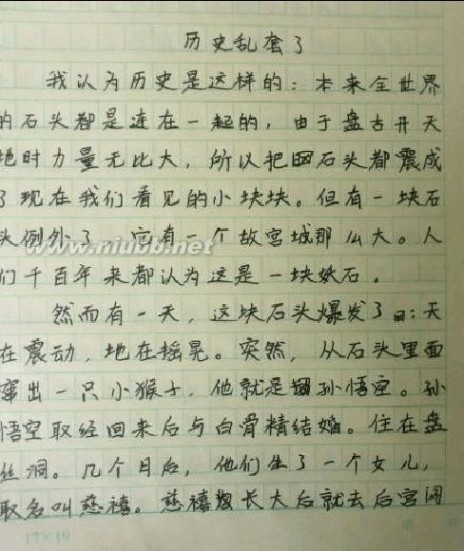 历史乱套了
我认为历史是这样的：本来全世界
的石头都是连在一起的，由于盘古开天
地时力量无比大，所以把石头都震成
了现在我们看见的小块块。但有一块石
头例外了，它有一个故宫城那么大。人
们千百年来都认为这是一块妖石．
www.niubb.net
然而有一天，这块石头爆发了：天
在震动，地在摇晃。突然，从石头里面
窜出一只小猴子，他就是孙悟空。孙
悟空取经回来后与白骨精结婚。住在盘
丝洞。几个月后，他们生了一个女儿，
取名叫慈禧。慈禧长大后就去后宫闹
17×19